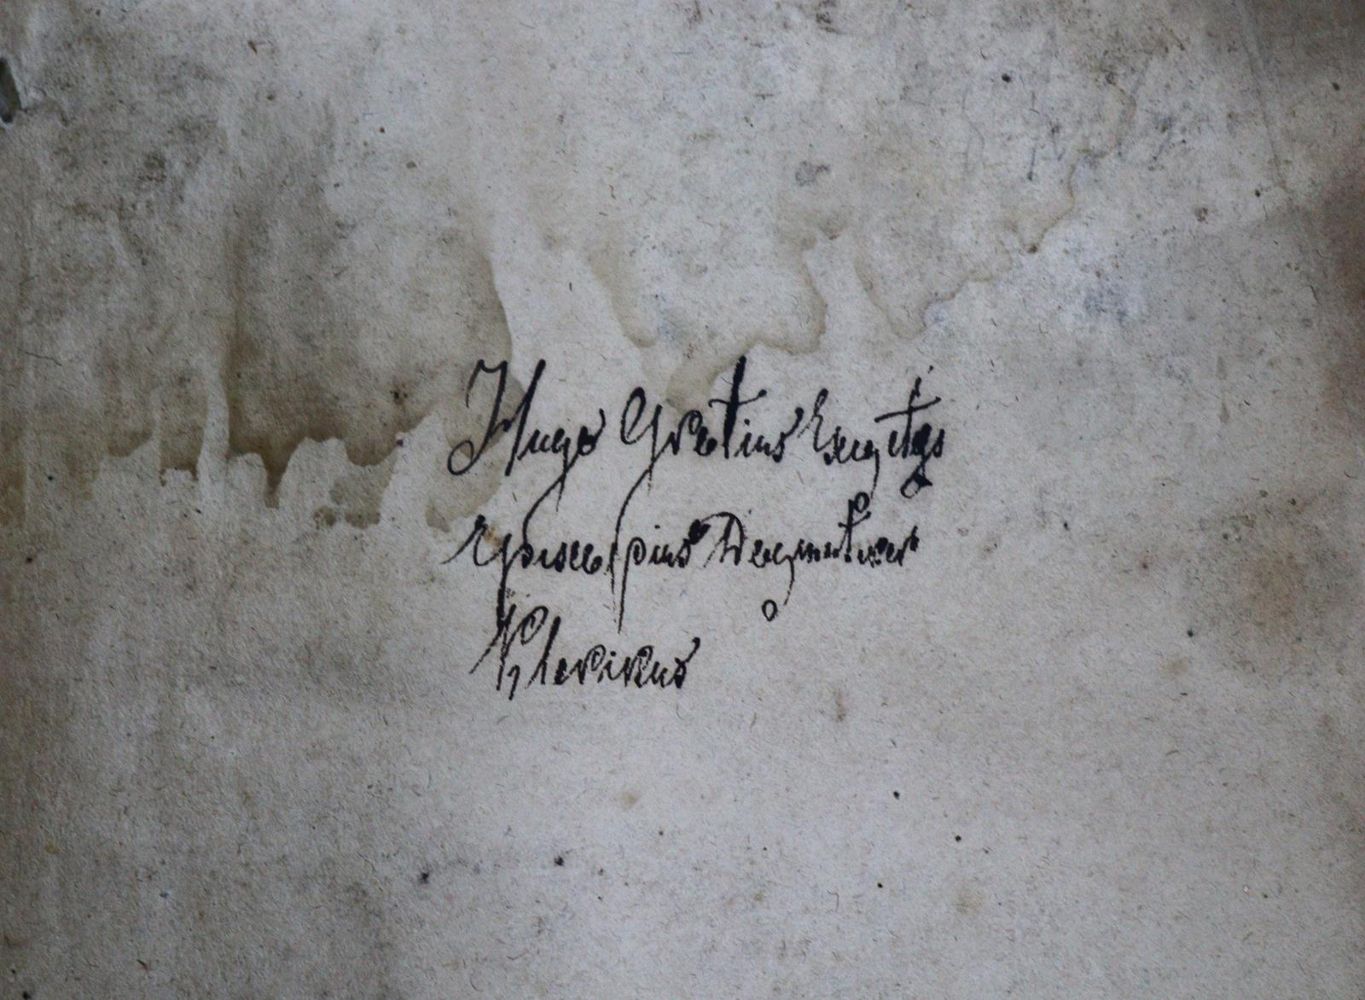 Hugo Grotius Exegetes
Episcopius Dogmaticer
Klerikus